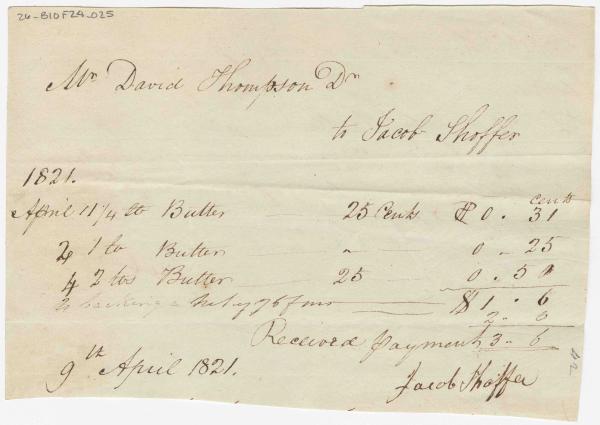 26-B10F24-025
Mr David Thompson Dr
to Jacob Shoffer
1821.
cents
April 1 1/4 lb Butter 25 Cents $ 0. 31
2 1 lb Butter 0 - 25
4 2 lbs Butter 25 0. 50
$ 1. 6
2. 0
Received payment 3 - 6
9th April 1821.
Jacob Shoffer